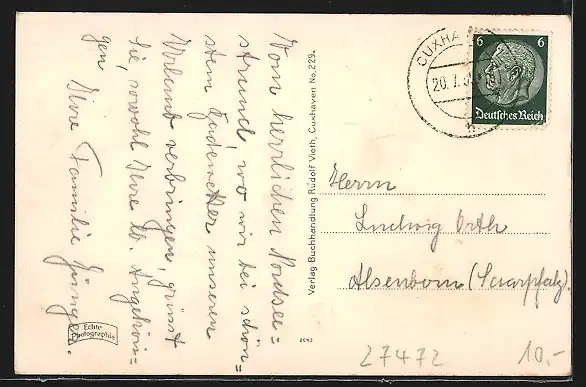 Vom herrlichen Nordsee=
strand, wo wir bei schön=
stem Badewetter unseren
Urlaub verbringen, grüsst
Sie, sowohl Ihre lb. Angehöri=
gen Ihre Familie Jünger.
Echte
Photographie
Verlag Buchhandlung Rudolf Vieth, Cuxhaven No. 229.
CUXHA
20.7.
6 6
Deutsches Reich
Herrn
Ludwig Orth
Alsenborn (Saarpfalz).
27472
10.-